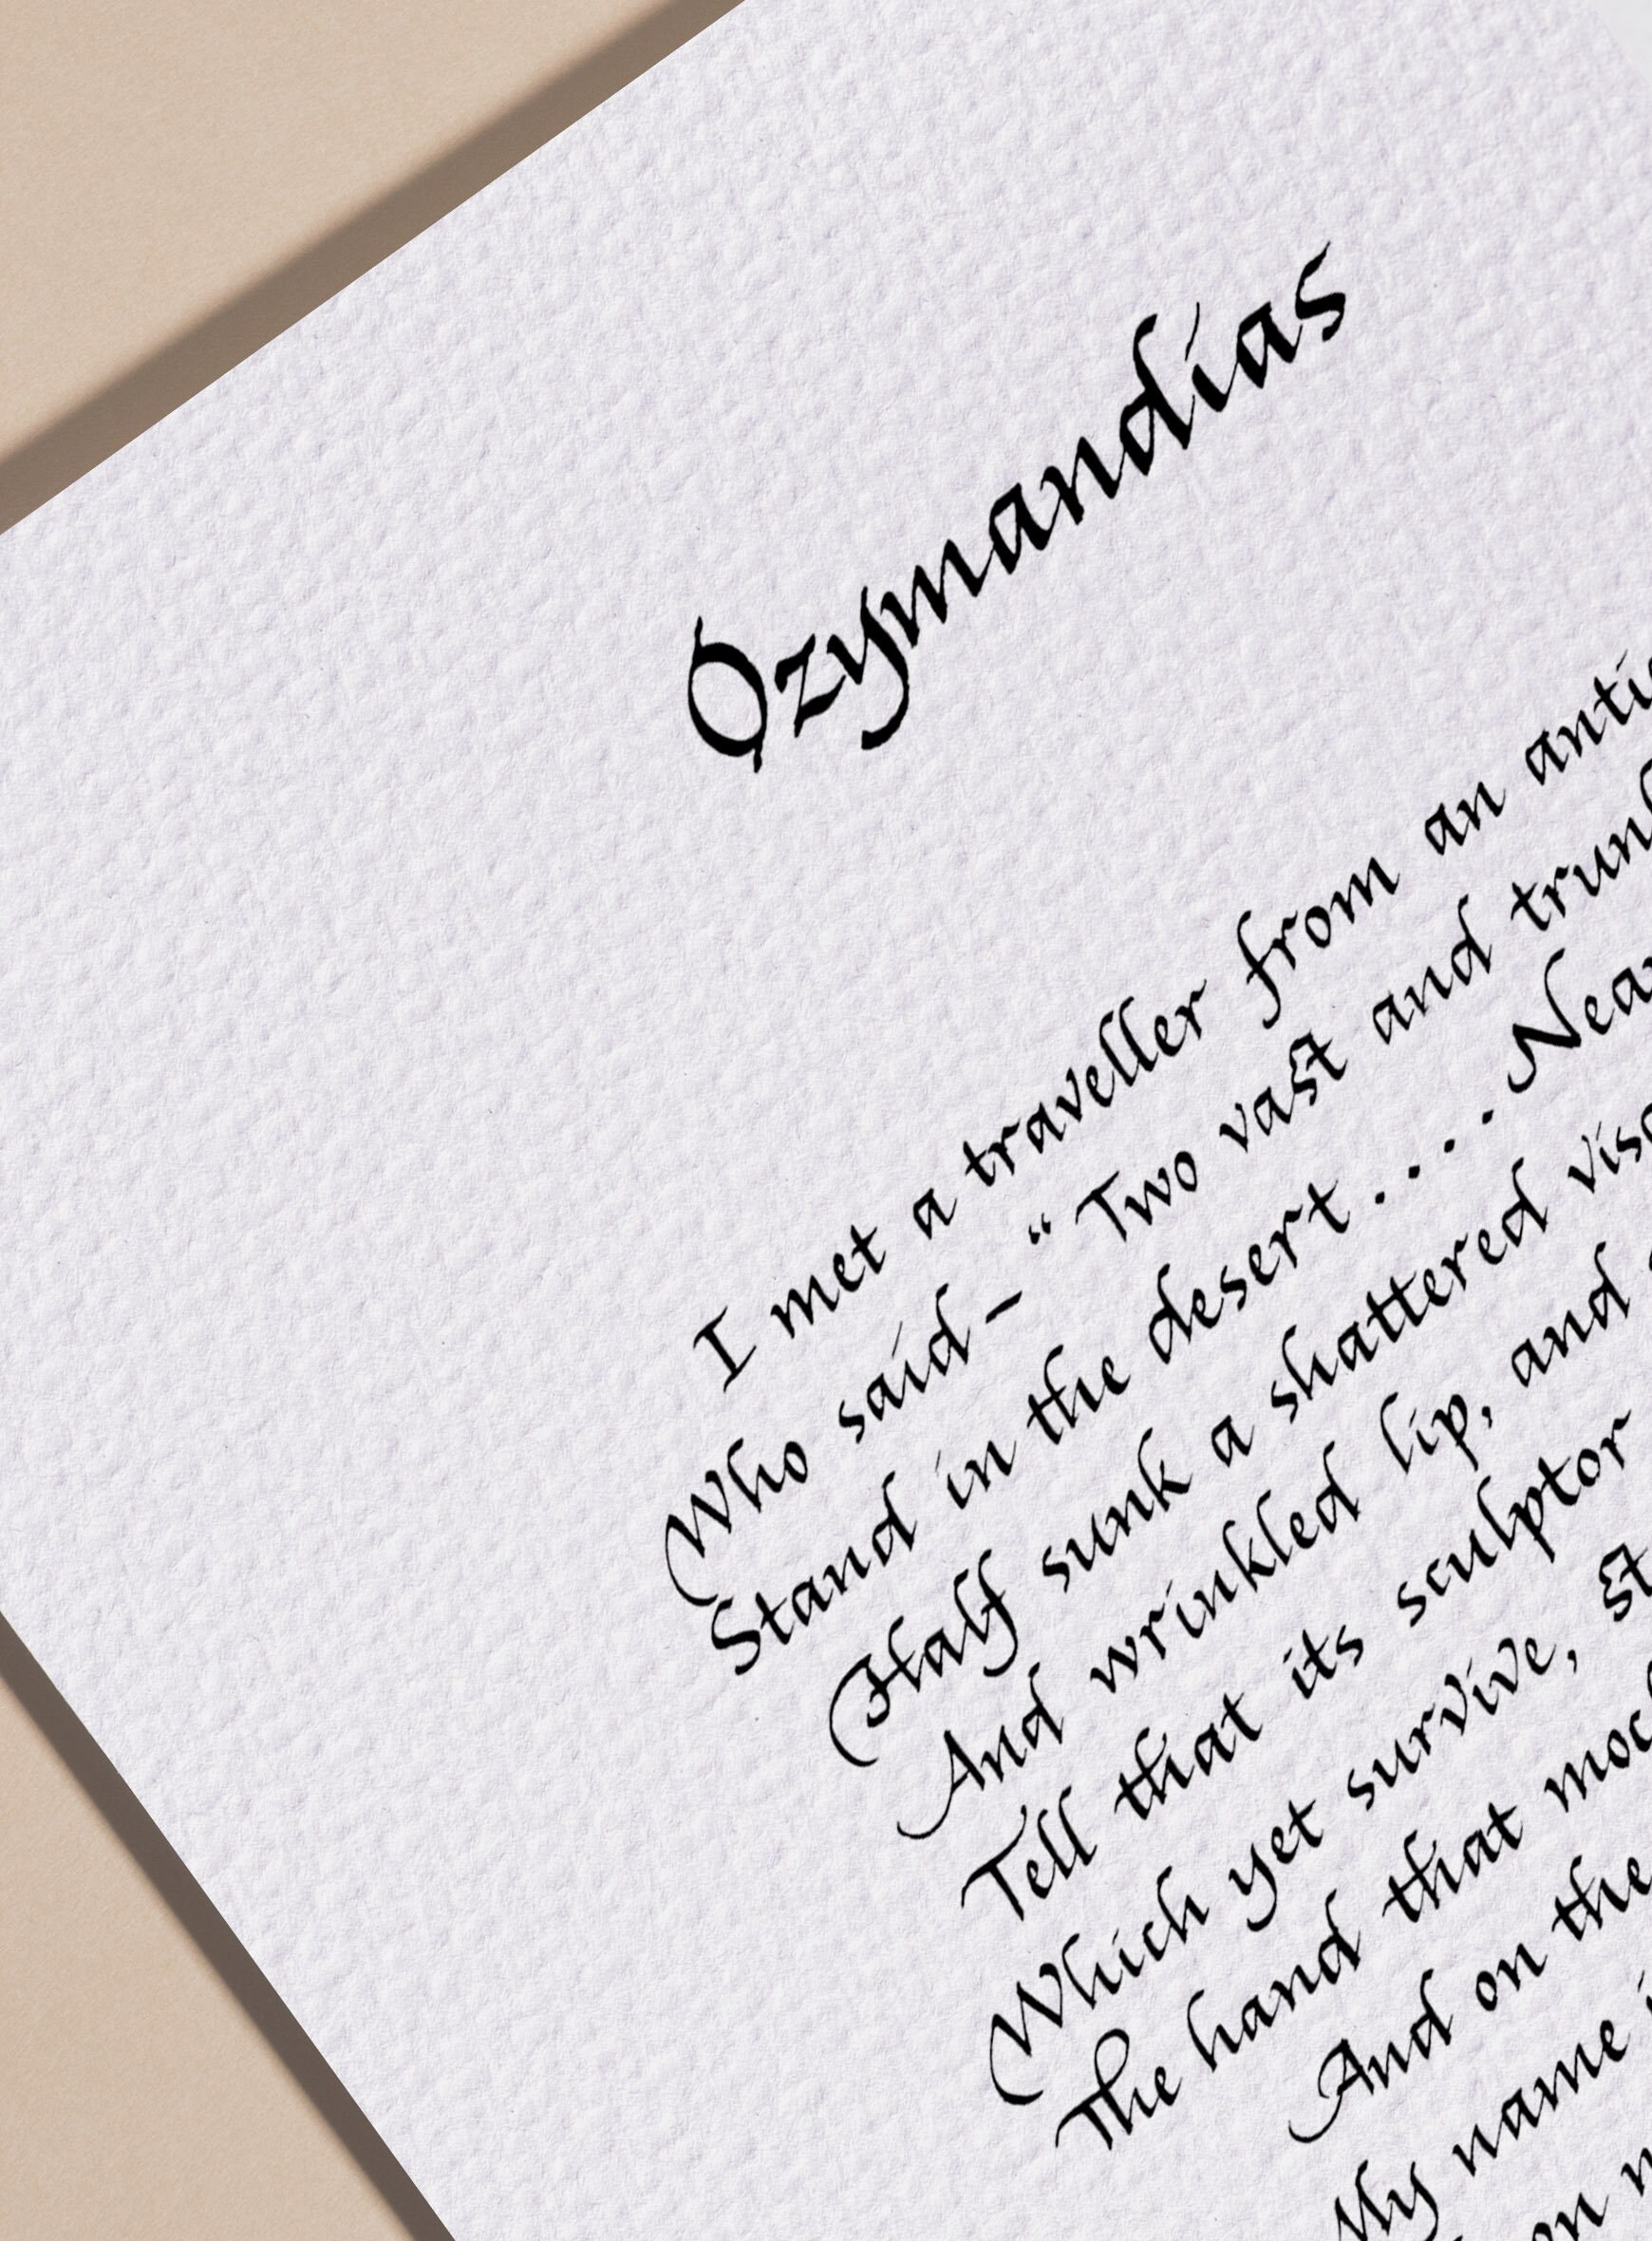 Ozymandias
I met a traveller from an anti
Who said – “Two vast and trun
Stand in the desert . . . . Near
Half sunk a shattered vis
And wrinkled lip, and
Tell that its sculptor
Which yet survive, st
The hand that moc
And on the
My name i
on